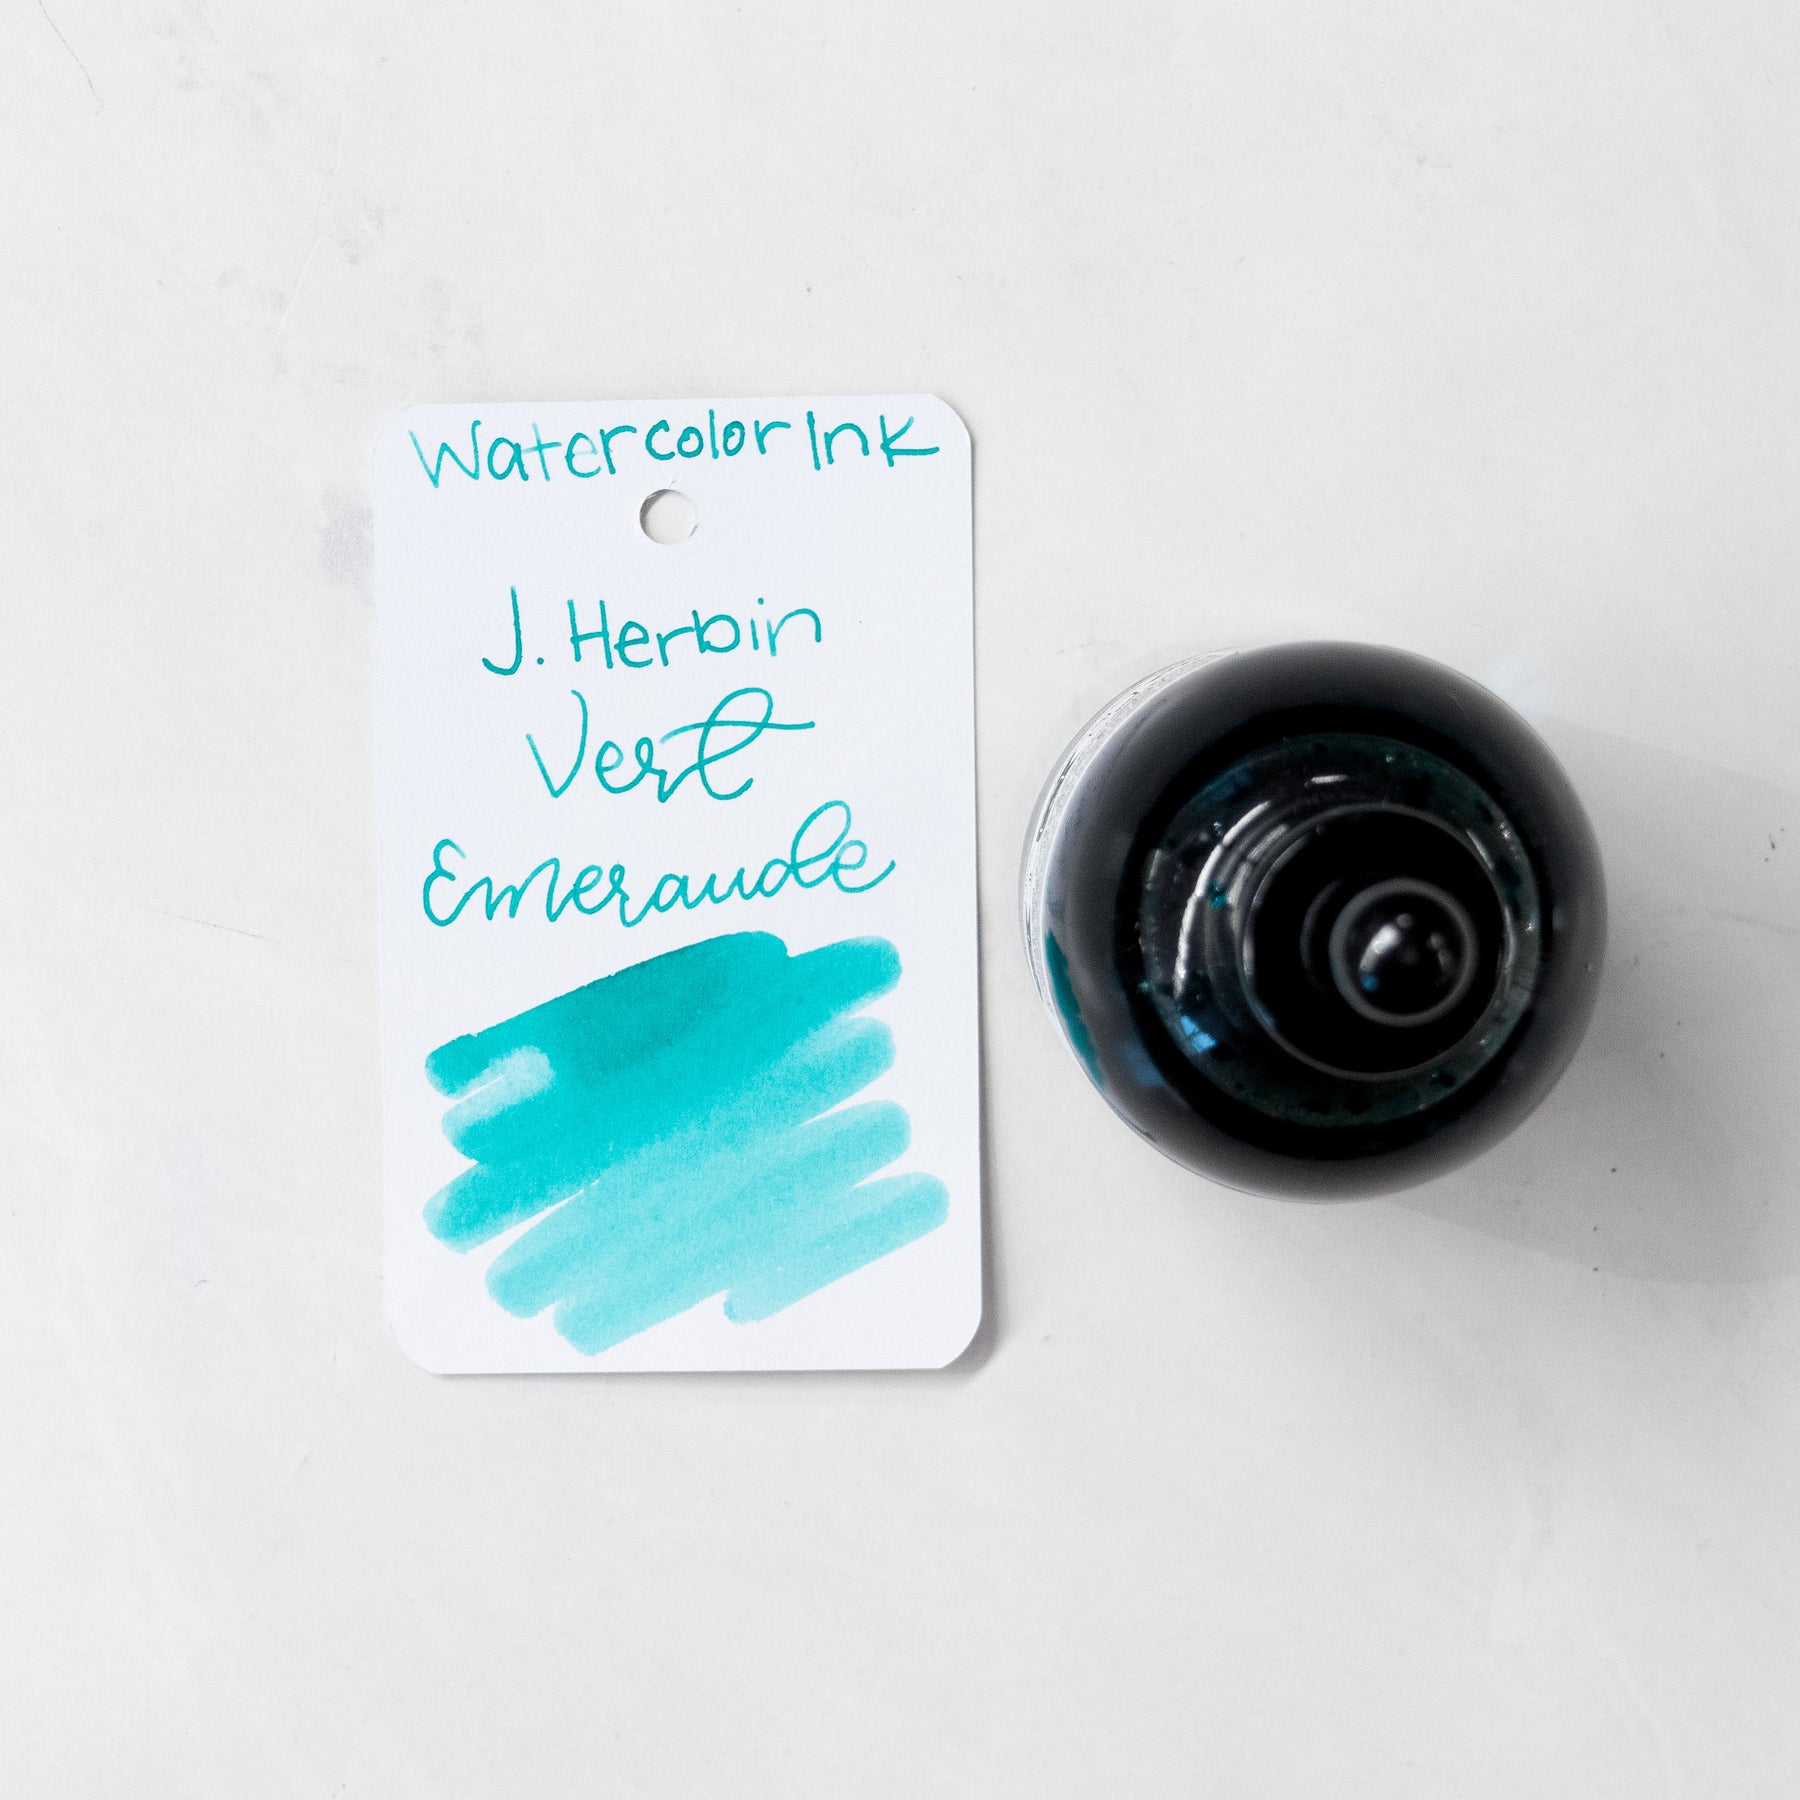 Watercolor Ink
J. Herbin
Vert
Emeraude